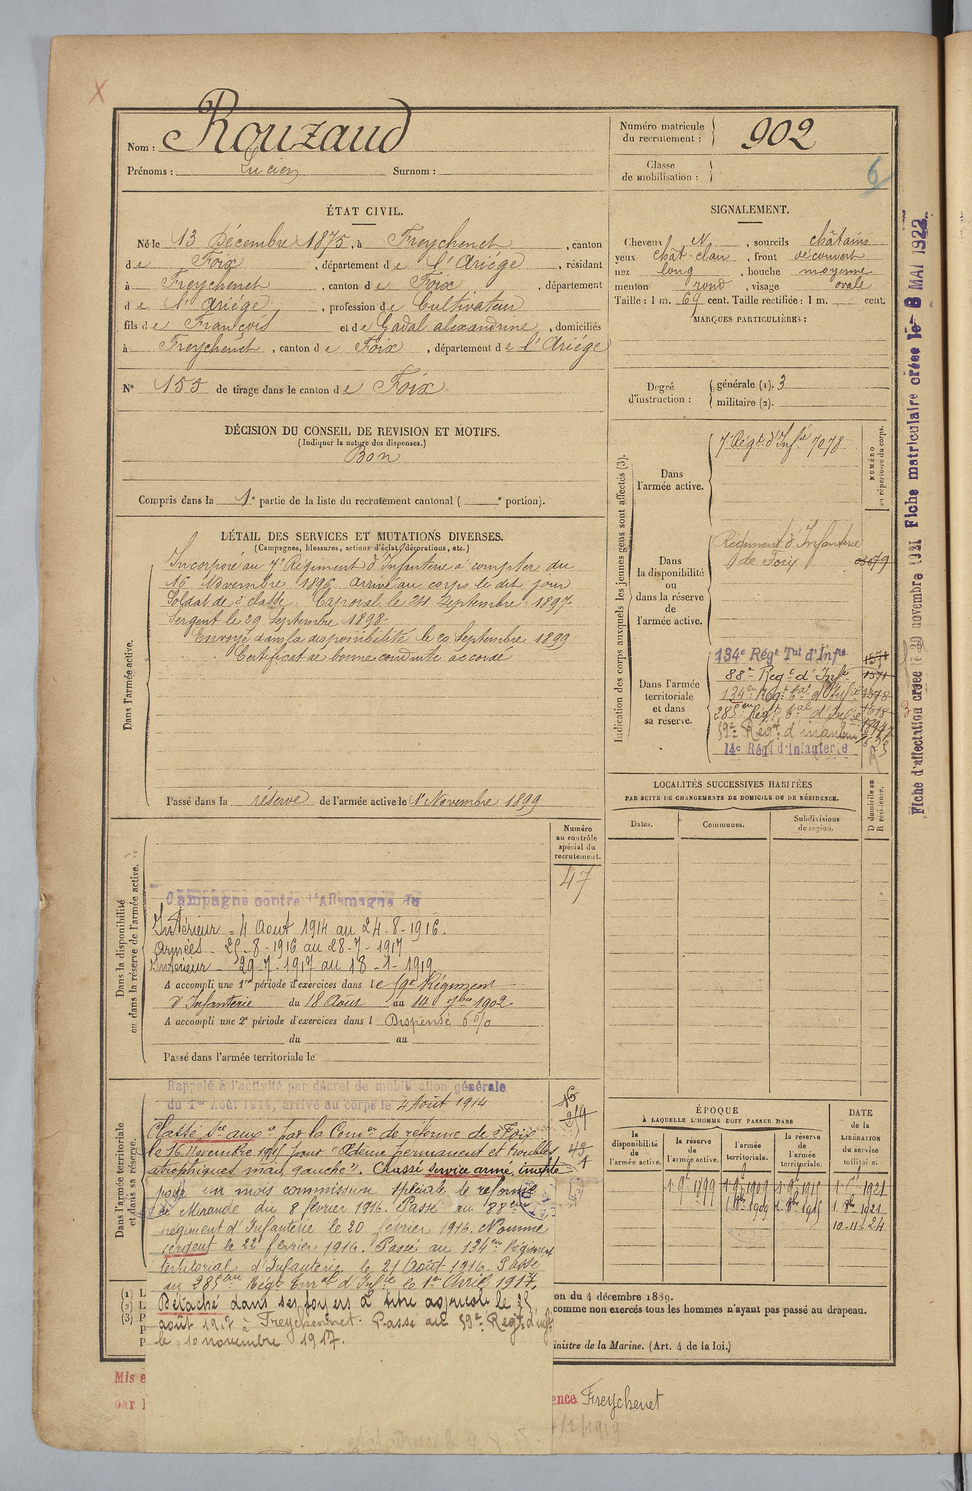 Nom : Rouzaud
Prénoms : Lucien Surnom :
Numéro matricule
du recrutement : 902
Classe
de mobilisation :
6
ÉTAT CIVIL.
Né le 13 Décembre 1875, à Freychenet, canton
de Foix, département de l'Ariége, résidant
à Freychenet, canton de Foix, département
de l'Ariége, profession de Cultivateur
fils de François et de Gadal alexandrine, domiciliés
à Freychenet, canton de Foix, département de l'Ariége
N° 155 de tirage dans le canton de Foix
SIGNALEMENT.
Cheveux N, sourcils châtains
yeux chat-clair, front découvert
nez long, bouche moyenne
menton rond, visage ovale
Taille : 1 m. 69 cent. Taille rectifiée : 1 m. cent.
MARQUES PARTICULIÈRES :
Degré
d'instruction :
générale (1). 3
militaire (2).
DÉCISION DU CONSEIL DE REVISION ET MOTIFS.
(Indiquer la nature des dispenses.)
Bon
Compris dans la 1e partie de la liste du recrutement cantonal ( e portion).
DÉTAIL DES SERVICES ET MUTATIONS DIVERSES.
(Campagnes, blessures, actions d'éclat, décorations, etc.)
Dans l'armée active.
Incorporé au 7e Régiment d'Infanterie à compter du
16 Novembre 1896. arrivé au corps le dit jour
Soldat de 2e classe. Caporal le 24 Septembre 1897.
Sergent le 29 Septembre 1898.
Envoyé dans la disponibilité le 20 Septembre 1899
Certificat de bonne conduite accordé
Passé dans la réserve de l'armée active le 1er Novembre 1899
Indication des corps auxquels les jeunes gens sont affectés (3).
NUMÉRO
au répertoire du corps.
Dans
l'armée active.
7e Régt d'Infie 7078
Dans
la disponibilité
ou
dans la réserve
de
l'armée active.
Régiment d'Infanterie
de Foix
Dans l'armée
territoriale
et dans
sa réserve.
134e Régt Tal d'Infie
88e Regt d'Infie
134e Régt tal d'Infie
285e Régt tal d'Infie
59e Régt d'infanterie
14e Régt d'Infanterie
LOCALITÉS SUCCESSIVES HABITÉES
PAR SUITE DE CHANGEMENTS DE DOMICILE OU DE RÉSIDENCE.
Dates.
Communes.
Subdivisions
de région.
D domicile ou
R résidence.
Numéro
au contrôle
spécial du
recrutement.
47
Dans la disponibilité
ou dans la réserve de l'armée active.
Campagne contre l'Allemagne du
Intérieur - 4 Aout 1914 au 24-8-1916.
Armées - 25-8-1916 au 28-7-1917
Intérieur - 29-7-1917 au 18-1-1919
A accompli une 1re période d'exercices dans le 59e Régiment
d'Infanterie du 18 Août au 14 7bre 1902.
A accompli une 2e période d'exercices dans l Dispensé 6 %
du au
Passé dans l'armée territoriale le
Dans l'armée territoriale
et dans sa réserve.
Rappelé à l'activité par décret de mobilisation générale
du 1er Août 1914, arrivé au corps le 4 Août 1914
Classé Sce auxre par la Comon de réforme de Foix
le 16 Novembre 1915 pour "Oedème permanent et troubles
atrophiques main gauche". Classé service armé, inapte
pour un mois commission spéciale de réforme
de Mirande du 8 février 1916. Passé au 88eme
régiment d'Infanterie le 20 février 1916. Nommé
sergent le 22 février 1916. Passé au 134eme Régiment
territorial d'Infanterie le 21 Août 1916. Passé
au 285eme Régt d'Infie le 1er Avril 1917.
Détaché dans ses foyers à titre agricole le
août 1917 à Freychenet. Passé au 59e Regt d'infie
le 10 novembre 1917.
ÉPOQUE
À LAQUELLE L'HOMME DOIT PASSER DANS
DATE
de la
LIBÉRATION
du service
militaire.
la
disponibilité
de l'armée active.
la réserve
de
l'armée active.
l'armée
territoriale.
la réserve
de
l'armée
territoriale.
1 9bre 1899
10-11-24
(1) L
(2) L
(3) P
on du 4 décembre 1889.
comme non exercés tous les hommes n'ayant pas passé au drapeau.
inistre de la Marine. (Art. 4 de la loi.)
Mis e
par l
ence Freychenet
Fiche d'affectation créée le 20 novembre 1921 Fiche matriculaire créée le 8 MAI 1922